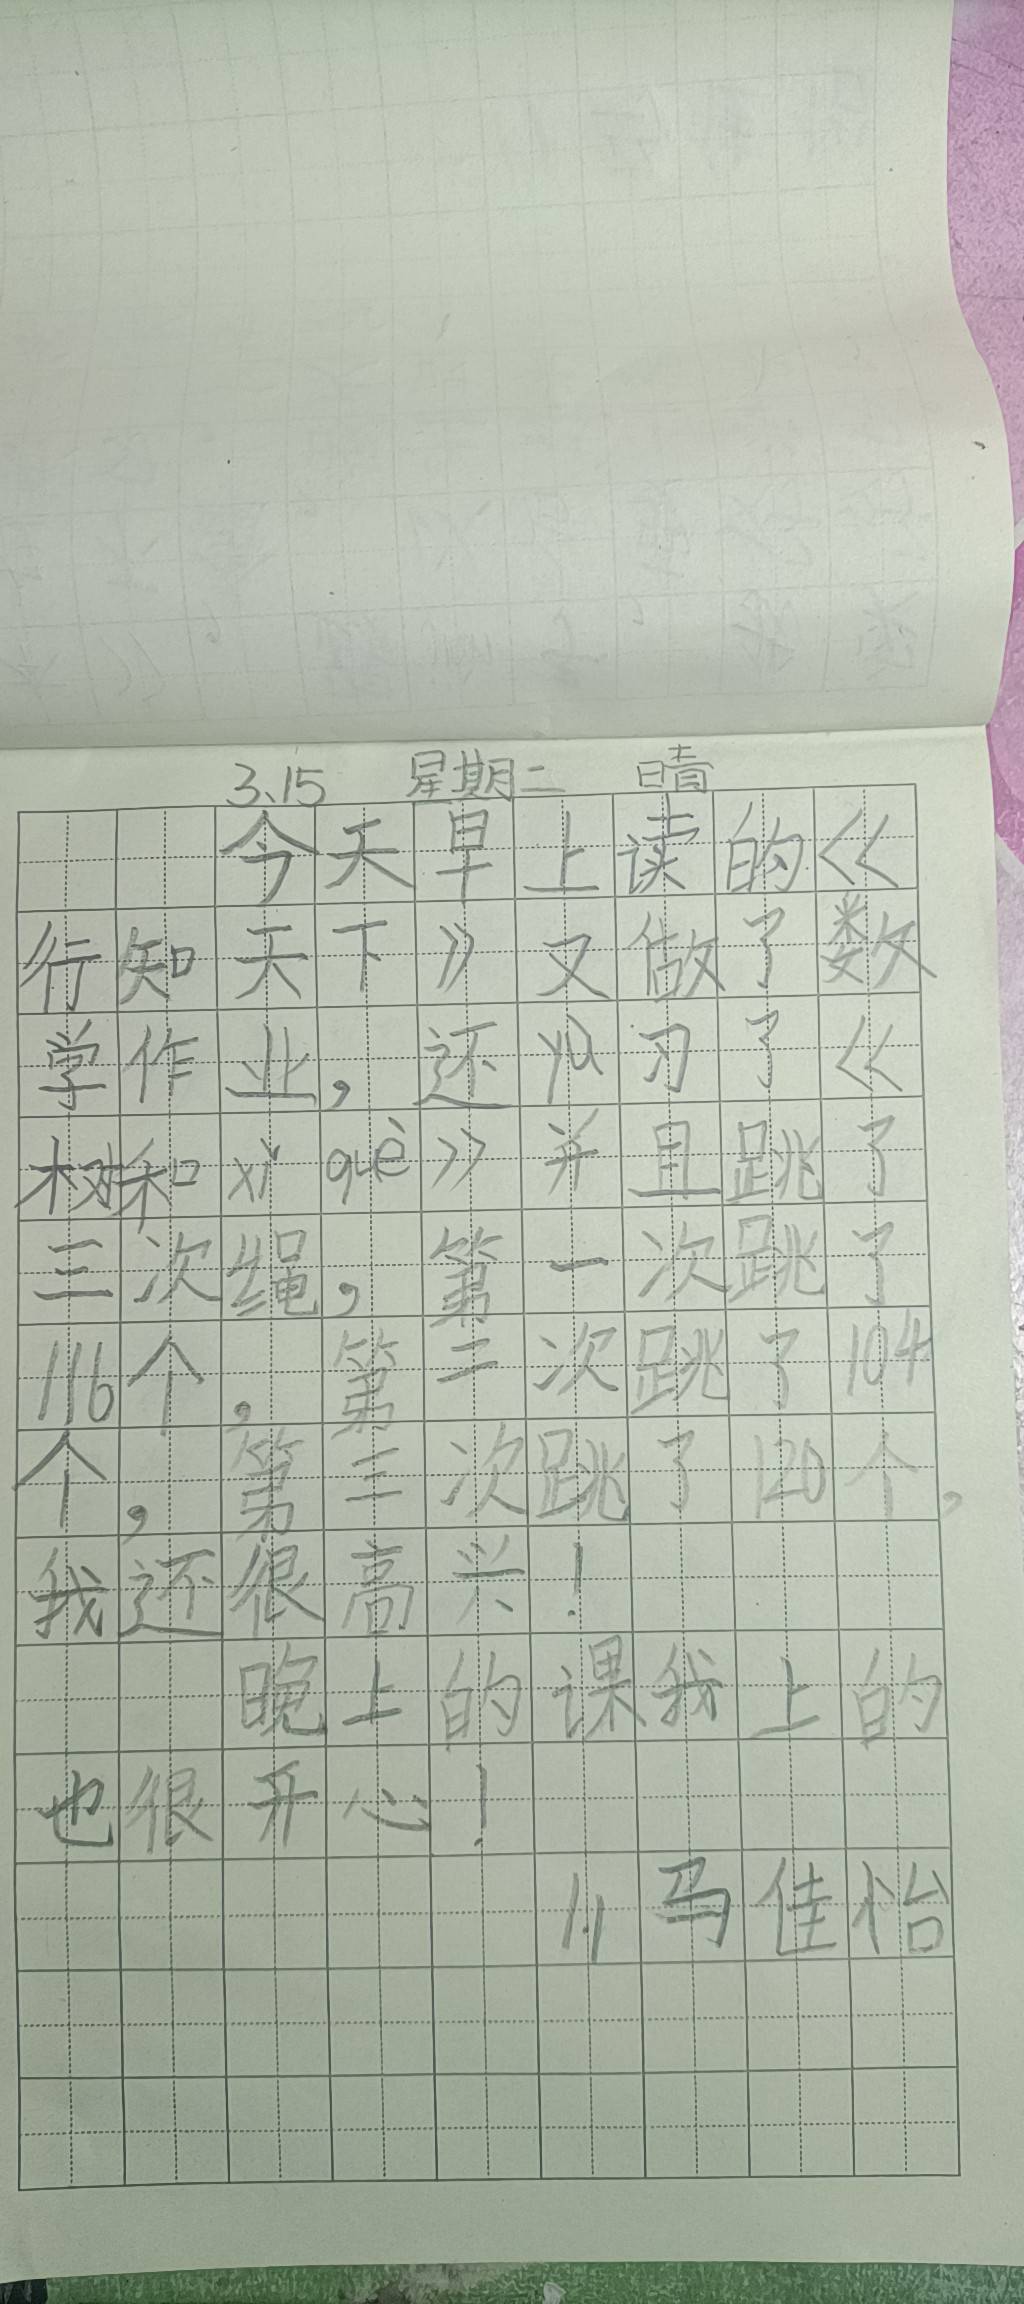 3.15 星期二 晴
今天早上读的《
行知天下》又做了数
学作业，还yù习了《
树和xǐ què》并且跳了
三次绳，第一次跳了
116个，第二次跳了104
个，第三次跳了120个，
我还很高兴！
晚上的课我上的
也很开心！
1.1马佳怡